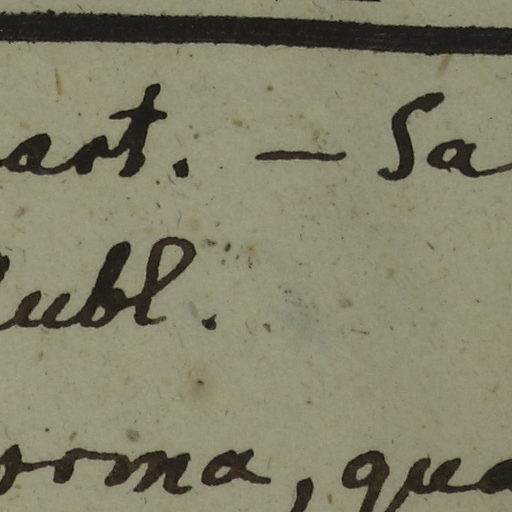 art. — Sa
ubl.
orma, qua